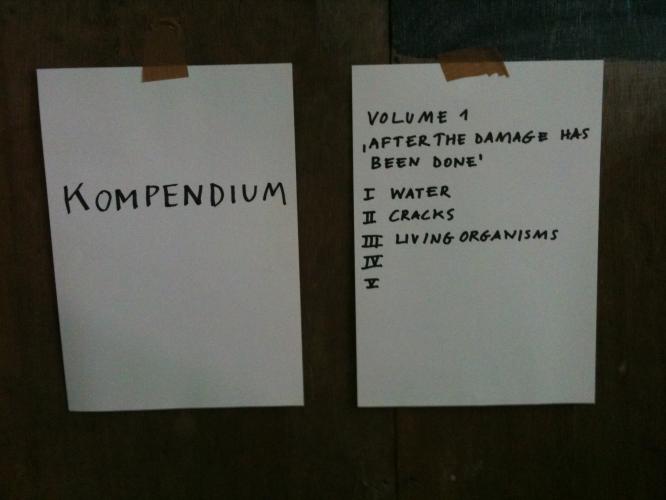 KOMPENDIUM
VOLUME 1
,AFTER THE DAMAGE HAS
BEEN DONE'
I WATER
II CRACKS
III LIVING ORGANISMS
IV
V